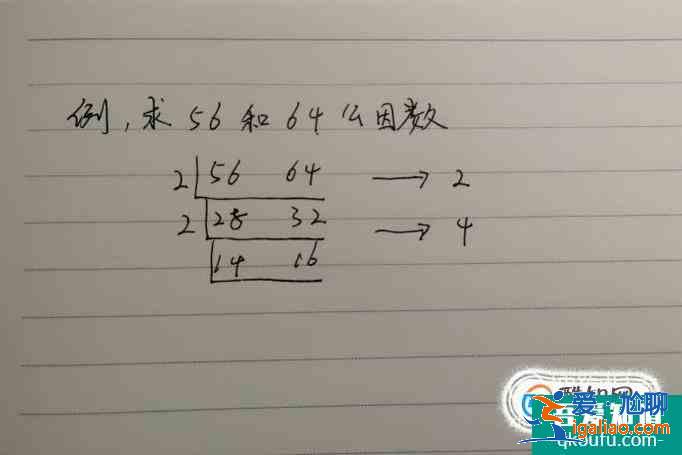 例，求 56 和 64 公因数
2 56 64 → 2
2 28 32 → 4
14 16
爱·尴聊
igaliao.com
qkoufu.com